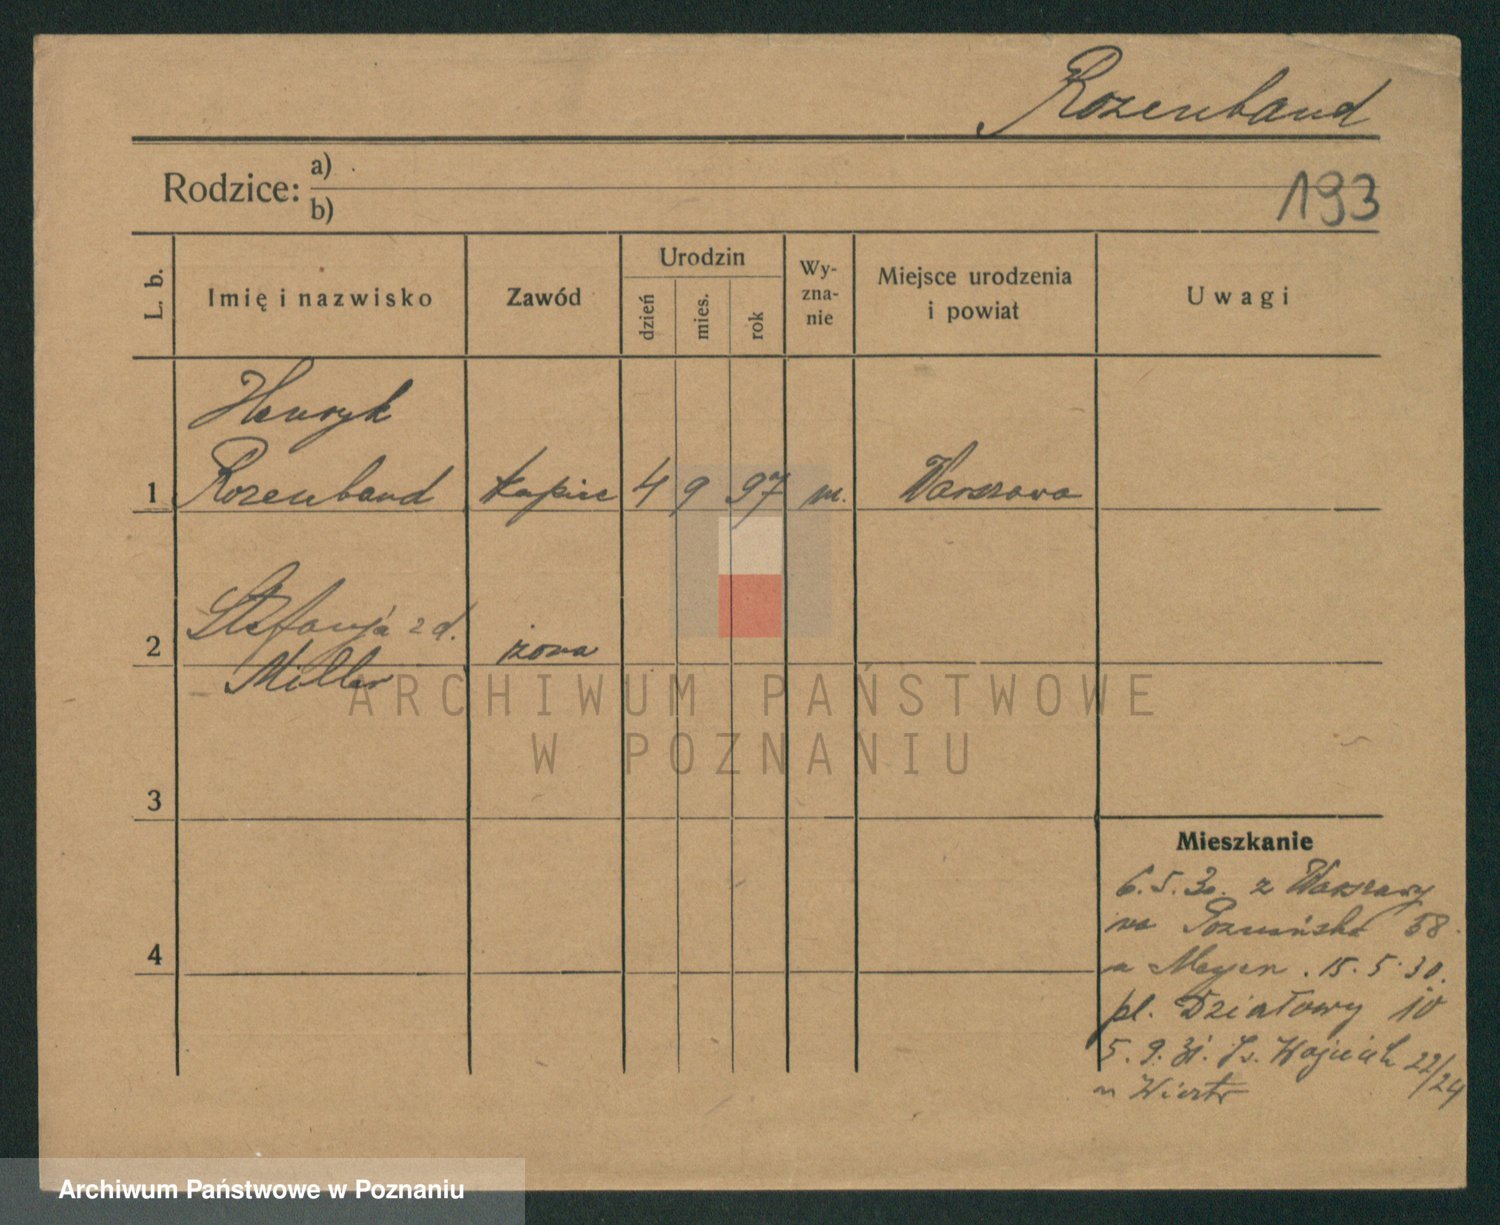 Rozenband
Rodzice: a)
b)
193
L. b.
Imię i nazwisko
Zawód
Urodzin
dzień
mies.
rok
Wy-
zna-
nie
Miejsce urodzenia
i powiat
Uwagi
Henryk
1 Rozenband kupiec 4 9 97 m. Warszawa
Stefanja z d.
2 żona
Miller
ARCHIWUM PAŃSTWOWE
W POZNANIU
3
Mieszkanie
6.5.30. z Warszawy
na Poznańska 58.
4
u Meyen. 15.5.30.
pl. Działowy 10
5.9.31. Św. Wojciech 22/24
u
Archiwum Państwowe w Poznaniu